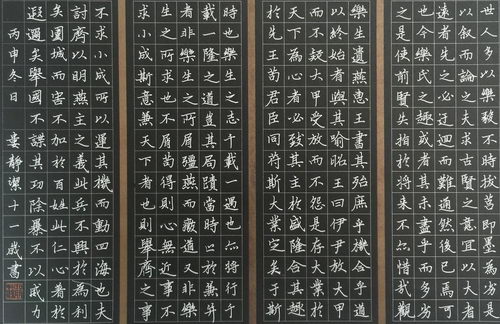 世人多以樂毅不時拔莒即墨為劣是
以敘而論之夫求古賢之意宜以大者
遠者先之必迂迴而難通然後已焉可
也今樂氏之趣或者其未盡乎而多劣
之是使前賢失指於將來不亦惜哉觀
樂生遺燕惠王書其殆庶乎機合乎道
以終始者與其喻昭王曰伊尹放大甲
而不疑大甲受放而不怨是存大業於
天下為心者必致其主於盛隆合其趣
於先王苟君臣同符斯大業定矣于斯
時也樂生之志千載一遇也亦將行千
載一隆之道豈其局蹟當時止於兼并
者非樂生之所屑彊燕而廢道又非樂
生之所求也不屑苟得則心無近事不
求小成斯意兼天下者也則舉齊之事
不求小成所以運其機而動四海也夫
討齊以明燕主之義此兵不興於為利
矣圍城而害不加於百姓此仁心著於
遐邇矣舉國不謀其功除暴不以威力
丙申冬日 婁靜潔十一歲書